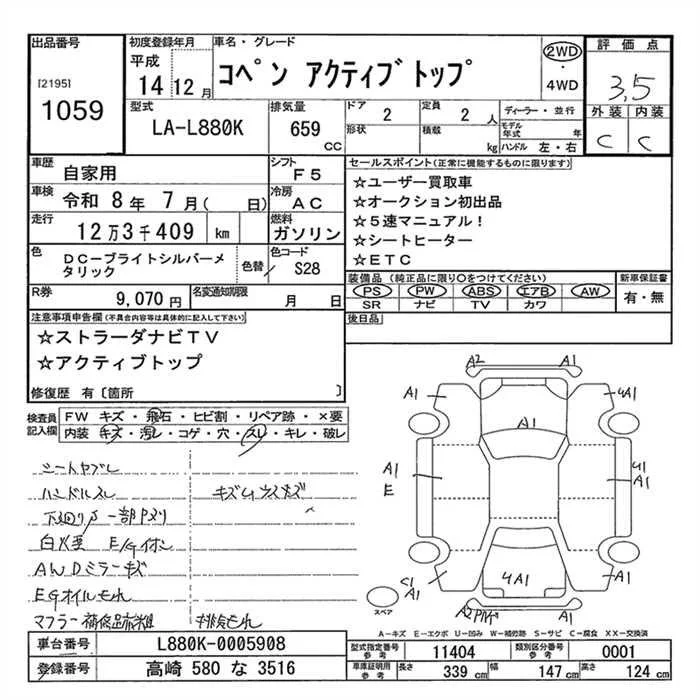 出品番号
[2195]
1059
初度登録年月
平成
14 12 月
車名・グレード
コペン アクティブトップ
2WD
・
4WD
評価点
3.5
外装 内装
C C
型式
LA-L880K
排気量
659
CC
ドア 2
定員 2 人
形状
積載 kg
ディーラー・並行
モデル年式 年
ハンドル 左・右
車歴 自家用
シフト F5
車検 令和 8 年 7 月( 日)
冷房 AC
走行 12万3千409 km
燃料 ガソリン
色 DC-ブライトシルバーメタリック
色替
色コード S28
R券 9,070 円
名変通知期限 月 日
セールスポイント(正常に機能するものに限ります)
☆ユーザー買取車
☆オークション初出品
☆5速マニュアル!
☆シートヒーター
☆ETC
装備品 (純正品に限り○をつけてください)
PS PW ABS エアB AW
SR ナビ TV カワ
新車保証書
有・無
後日品
注意事項申告欄(不具合内容等は具体的に記入して下さい)
☆ストラーダナビTV
☆アクティブトップ
修復歴 有〔箇所 〕
検査員記入欄
FW キズ・飛石・ヒビ割・リペア跡・×要
内装 キズ・汚レ・コゲ・穴・スレ・キレ・破レ
シートヤブレ
ハンドルスレ
下廻りサ一部Pヌリ
E/Gイオン
AWDミラーキズ
EGオイルもれ
マフラー補修跡
排気もれ
A2 A1
A1 4A1
A1
A1
E
A1
4A1
A1
A1
A2
スペア
A-キズ E-エクボ U-凹み W-補修跡 S-サビ C-腐食 XX-交換済
車台番号 L880K-0005908
登録番号 高崎 580 な 3516
型式指定番号 参考 11404
類別区分番号 参考 0001
車庫証明用 参考 長さ 339 cm 幅 147 cm 高さ 124 cm